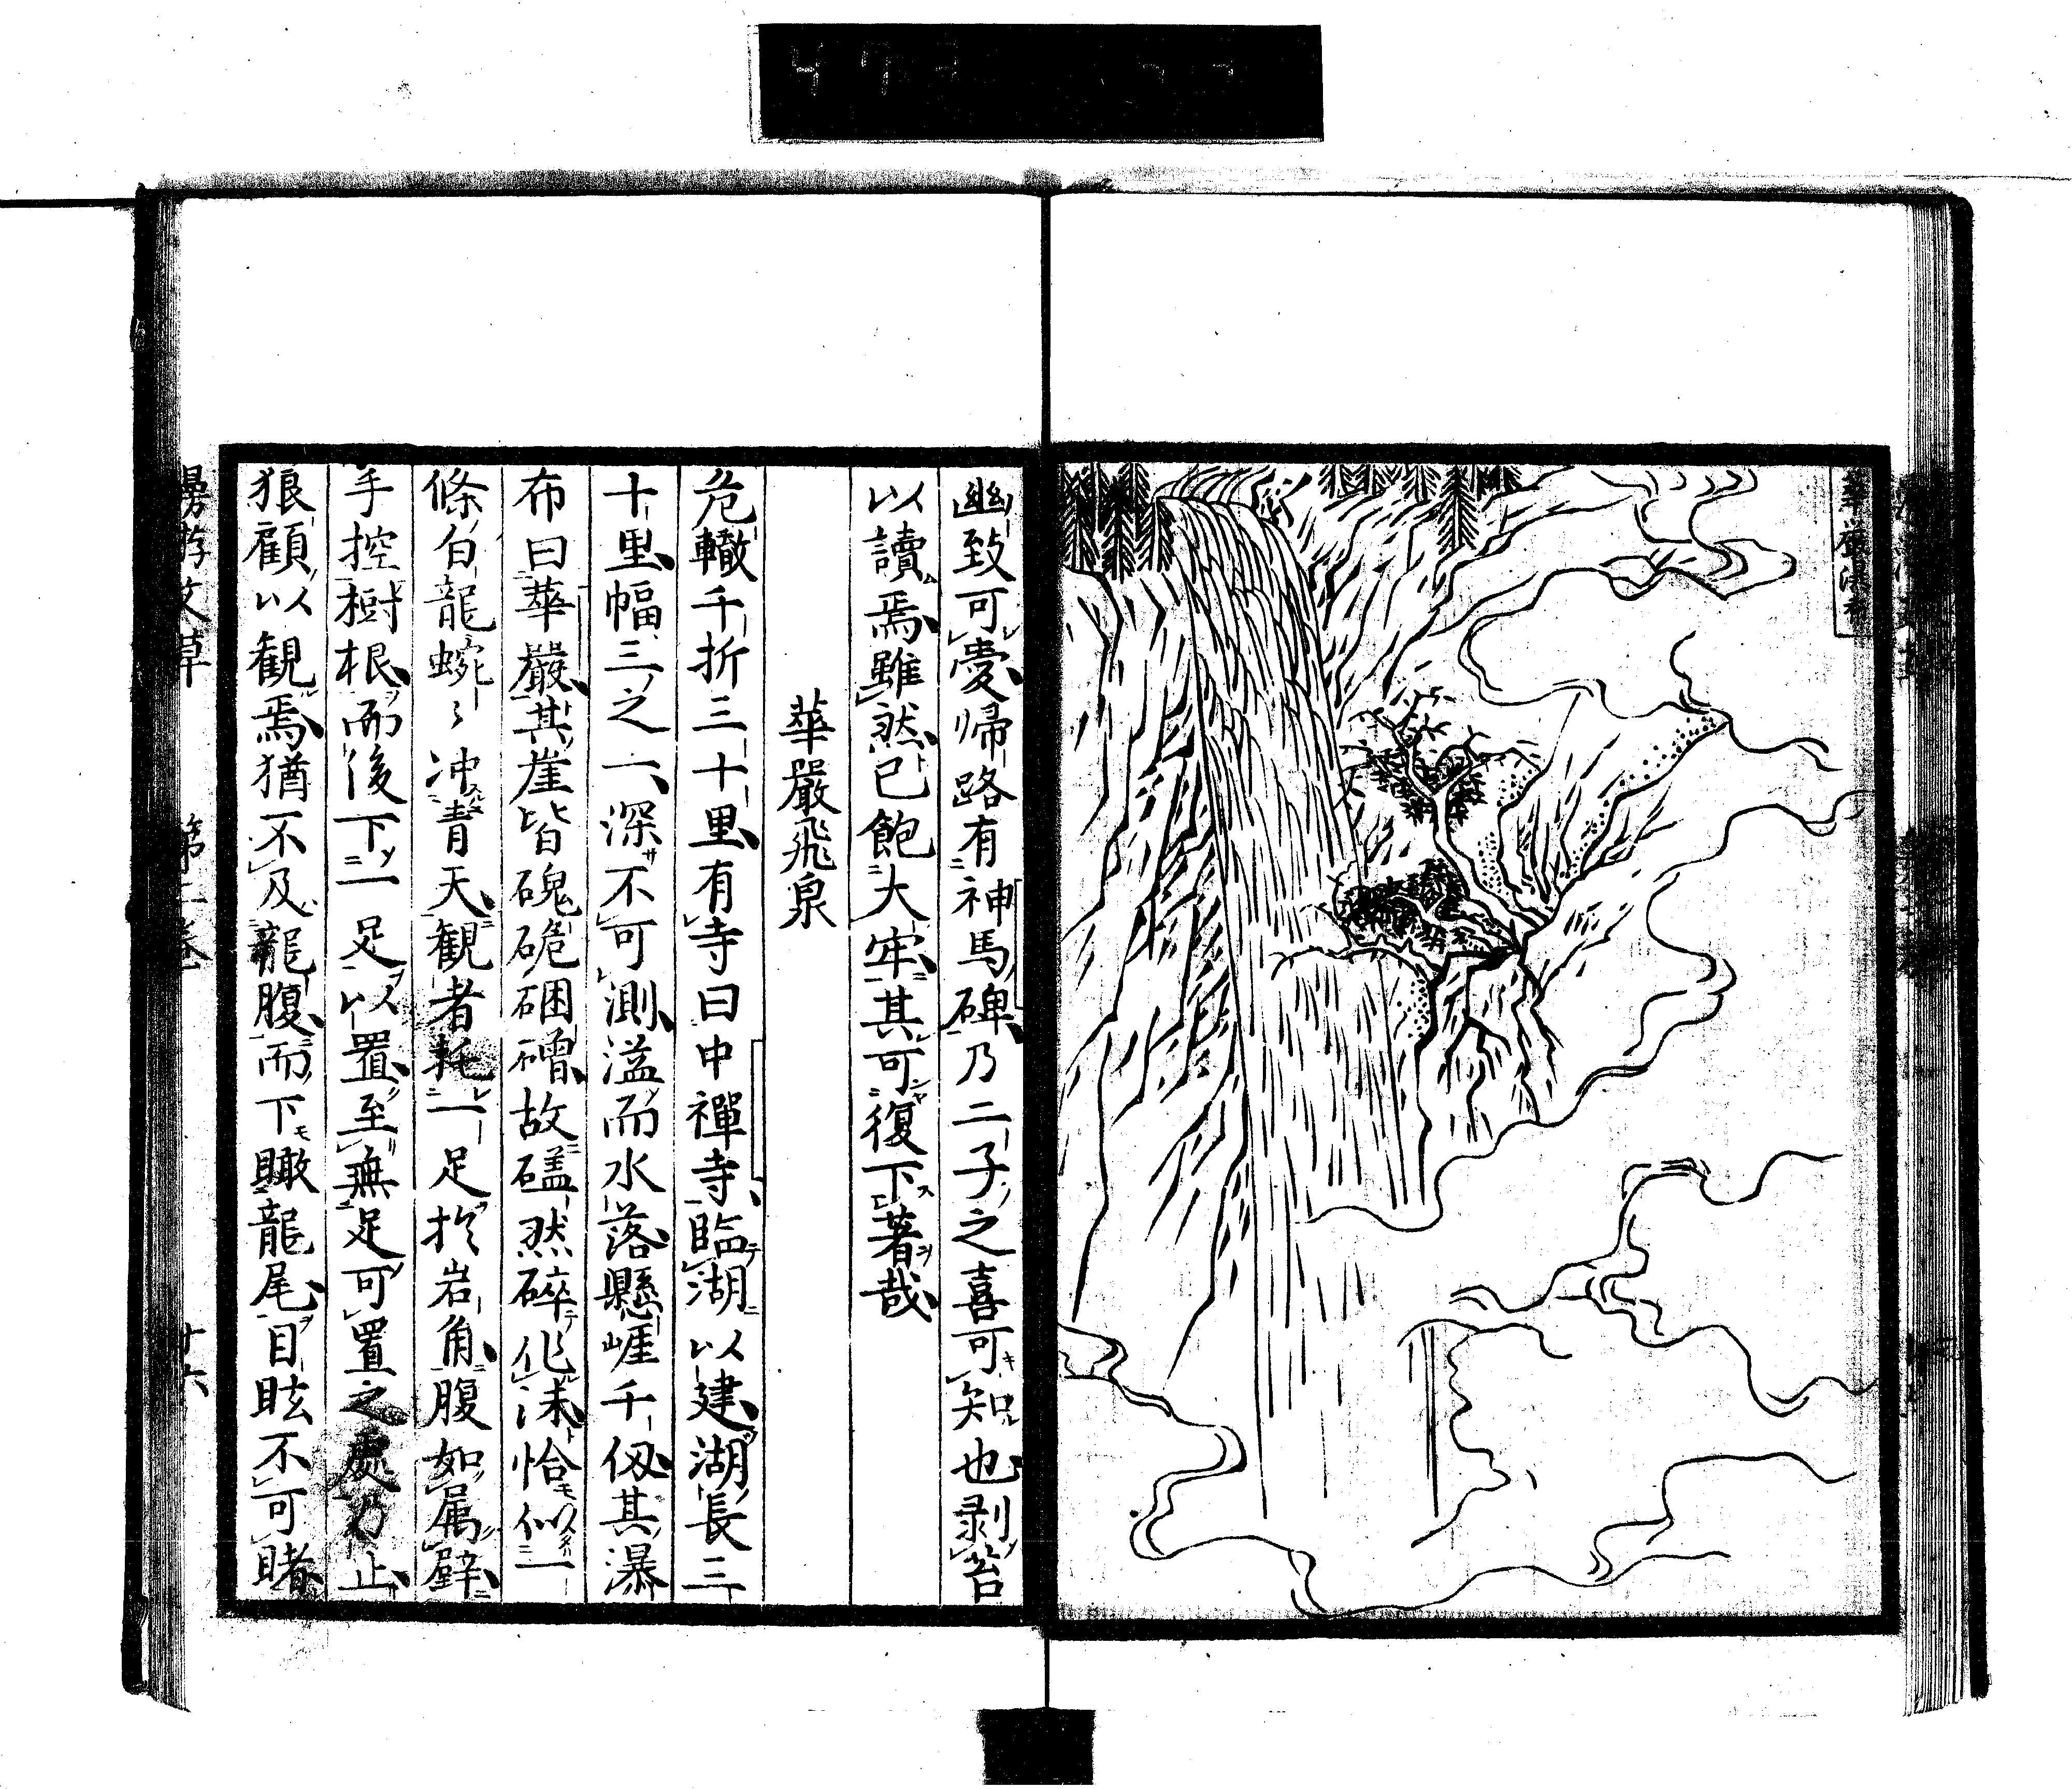 華嚴瀑布
幽致可愛帰路有神馬碑乃二子之喜可知也剥苔
以讀焉雖然已飽大牢其可復下著哉
華嚴飛泉
危轍千折三十里有寺曰中禪寺臨湖以建湖長三
十里幅三之一深不可測溢而水落懸崕千仭其瀑
布曰華嚴其崖皆磈硊硱磳故礚然碎化沫恰似一
條白龍蜿〻冲青天観者托一足於岩角腹如属壁
手控樹根而後下一足以置至無足可置之處乃止
狼顧以観焉猶不及龍腹而下瞰龍尾目眩不可睹
漫游文草
第二卷
十六